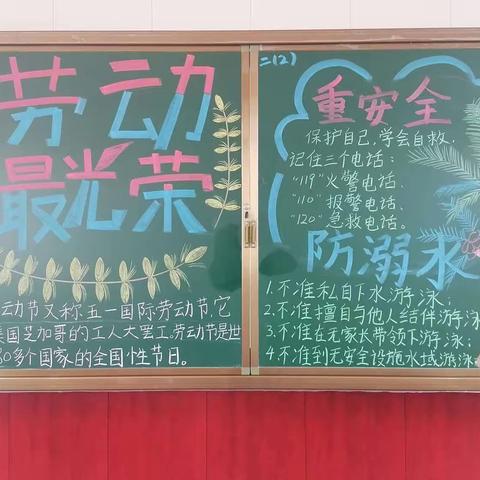 劳动
最光荣
动节又称五一国际劳动节,它
美国芝加哥的工人大罢工,劳动节是世
80多个国家的全国性节日。
二(2)
重安全
保护自己,学会自救.
记住三个电话:
"119"火警电话、
"110"报警电话、
"120"急救电话。
防溺水
1.不准私自下水游泳;
2.不准擅自与他人结伴游泳
3.不准在无家长带领下游泳;
4.不准到无安全设施水域游泳